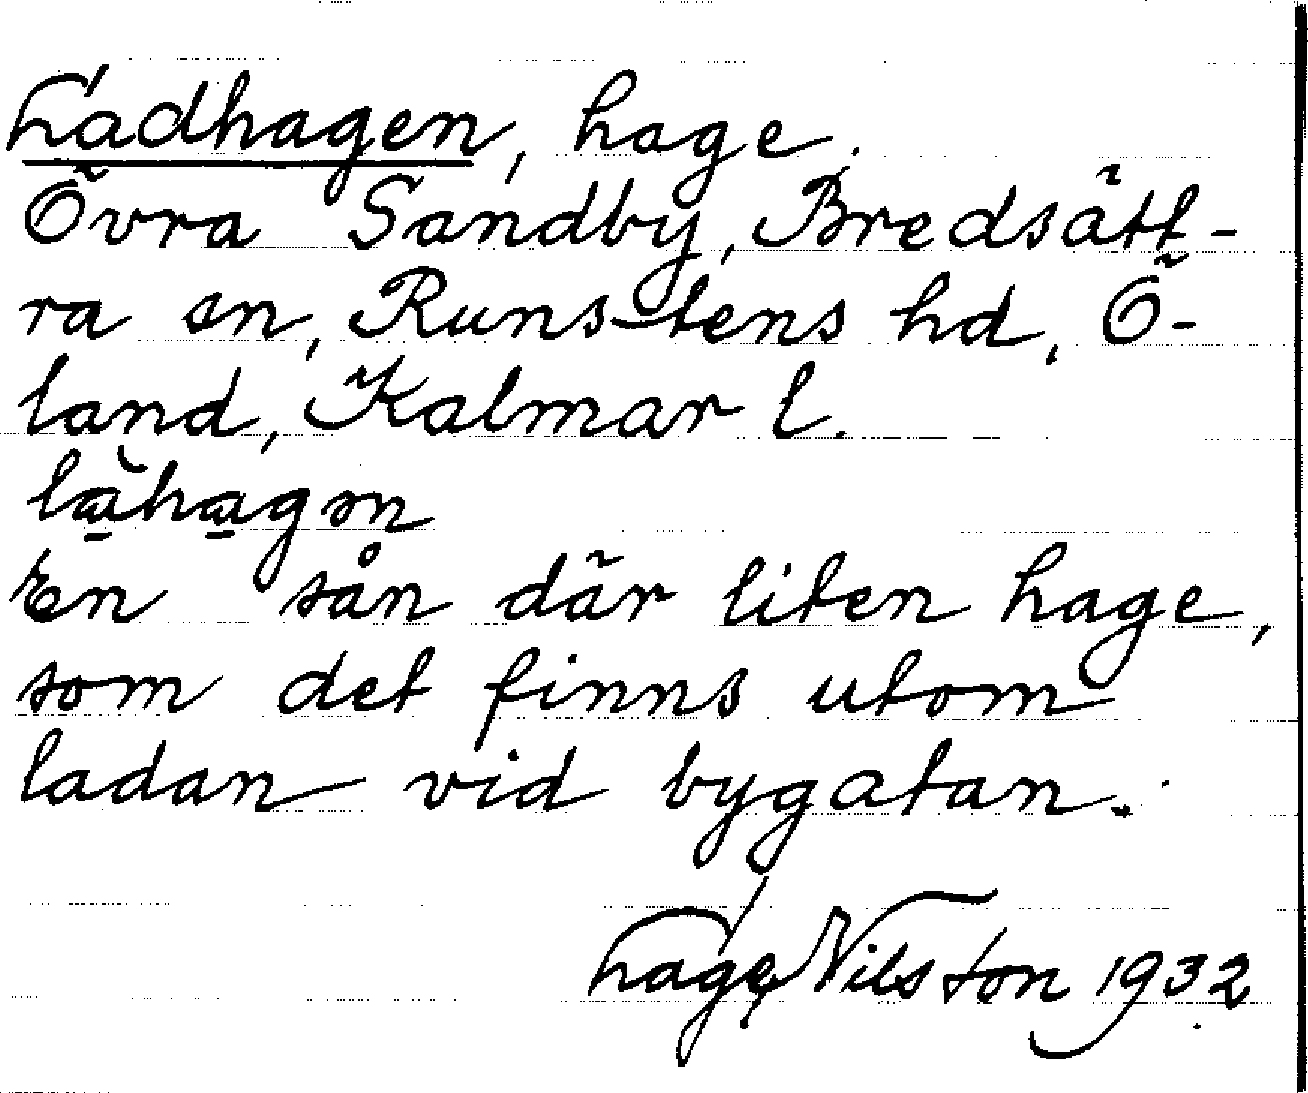 Ladhagen, hage.
Övra Sandby, Bredsätt-
ra sn, Runstens hd, Ö-
land, Kalmar l.
làhagən
En sån där liten hage,
som det finns utom
ladan vid bygatan.
Nilston 1932